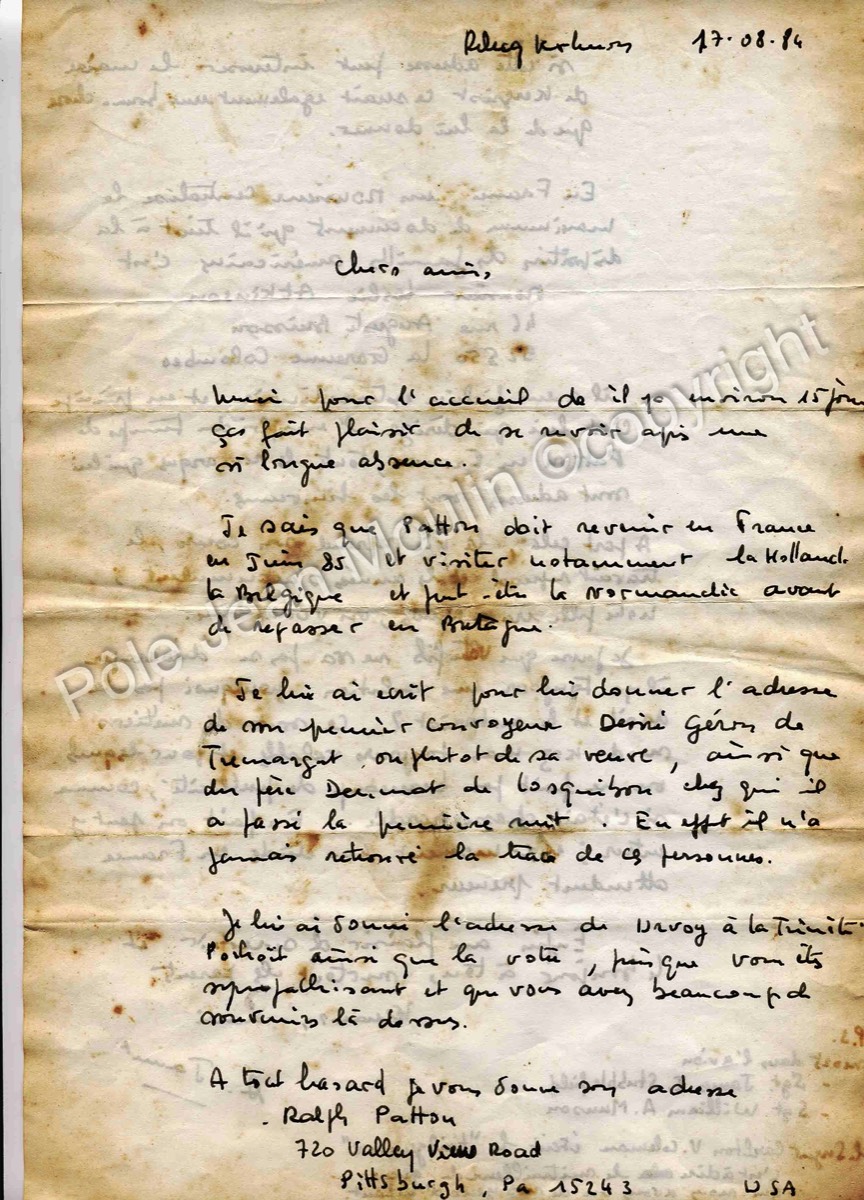 Relecq Kerhuon 17.08.84
Chers amis,
Merci pour l'accueil de il ya environ 15 jours
ças fait plaisir de se revoir après une
si longue absence.
Je sais que Patton doit revenir en France
en Juin 85 et visiter notamment la Hollande
la Belgique et peut-être la Normandie avant
de repasser en Bretagne.
Je lui ai écrit pour lui donner l'adresse
de son premier convoyeur Désiré Géron de
Tremargat ou plutot de sa veuve, ainsi que
du père Denmat de Losquibon chez qui il
a passé la première nuit. En effet il n'a
jamais retrouvé la trace de ces personnes.
Je lui ai donné l'adresse de Drvoy à la Trinité
Porhoët ainsi que la votre, puisque vous êtes
sympathisant et que vous avez beaucoup de
souvenirs là dessus.
A tout hasard je vous donne son adresse
Ralph Patton
720 Valley View Road
Pittsburgh, Pa 15243 USA
Pôle Jean Moulin ©copyright